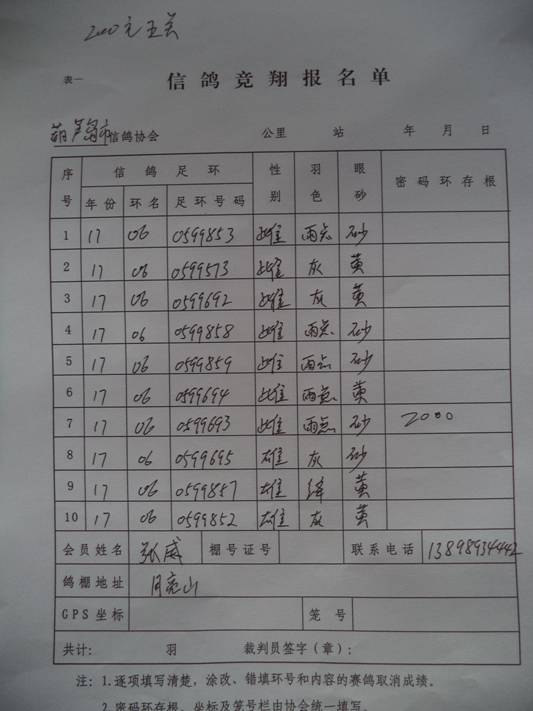 2000元五关
表一
信鸽竞翔报名单
葫芦岛市信鸽协会 公里 站 年 月 日
序号 信鸽足环 性别 羽色 眼砂 密码环存根
年份 环名 足环号码
1 17 06 0599853 雌 雨点 砂
2 17 06 0599573 雌 灰 黄
3 17 06 0599692 雌 灰 黄
4 17 06 0599858 雌 雨点 砂
5 17 06 0599859 雌 雨点 砂
6 17 06 0599694 雌 雨点 黄
7 17 06 0599693 雌 雨点 砂 2000
8 17 06 0599695 雄 灰 砂
9 17 06 0599857 雄 绛 黄
10 17 06 0599852 雄 灰 黄
会员姓名 张威 棚号证号 联系电话 13898934442
鸽棚地址 月亮山
GPS坐标 笼号
共计: 羽 裁判员签字(章):
注:1.逐项填写清楚,涂改、错填环号和内容的赛鸽取消成绩。
2.密码环存根、坐标及笼号栏由协会统一填写。